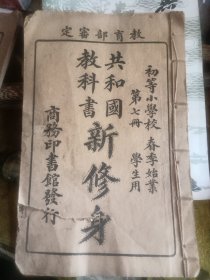 定審部育教
初等小學校 春季始業
第七冊 學生用
共和國
教科書
新修身
商務印書館發行